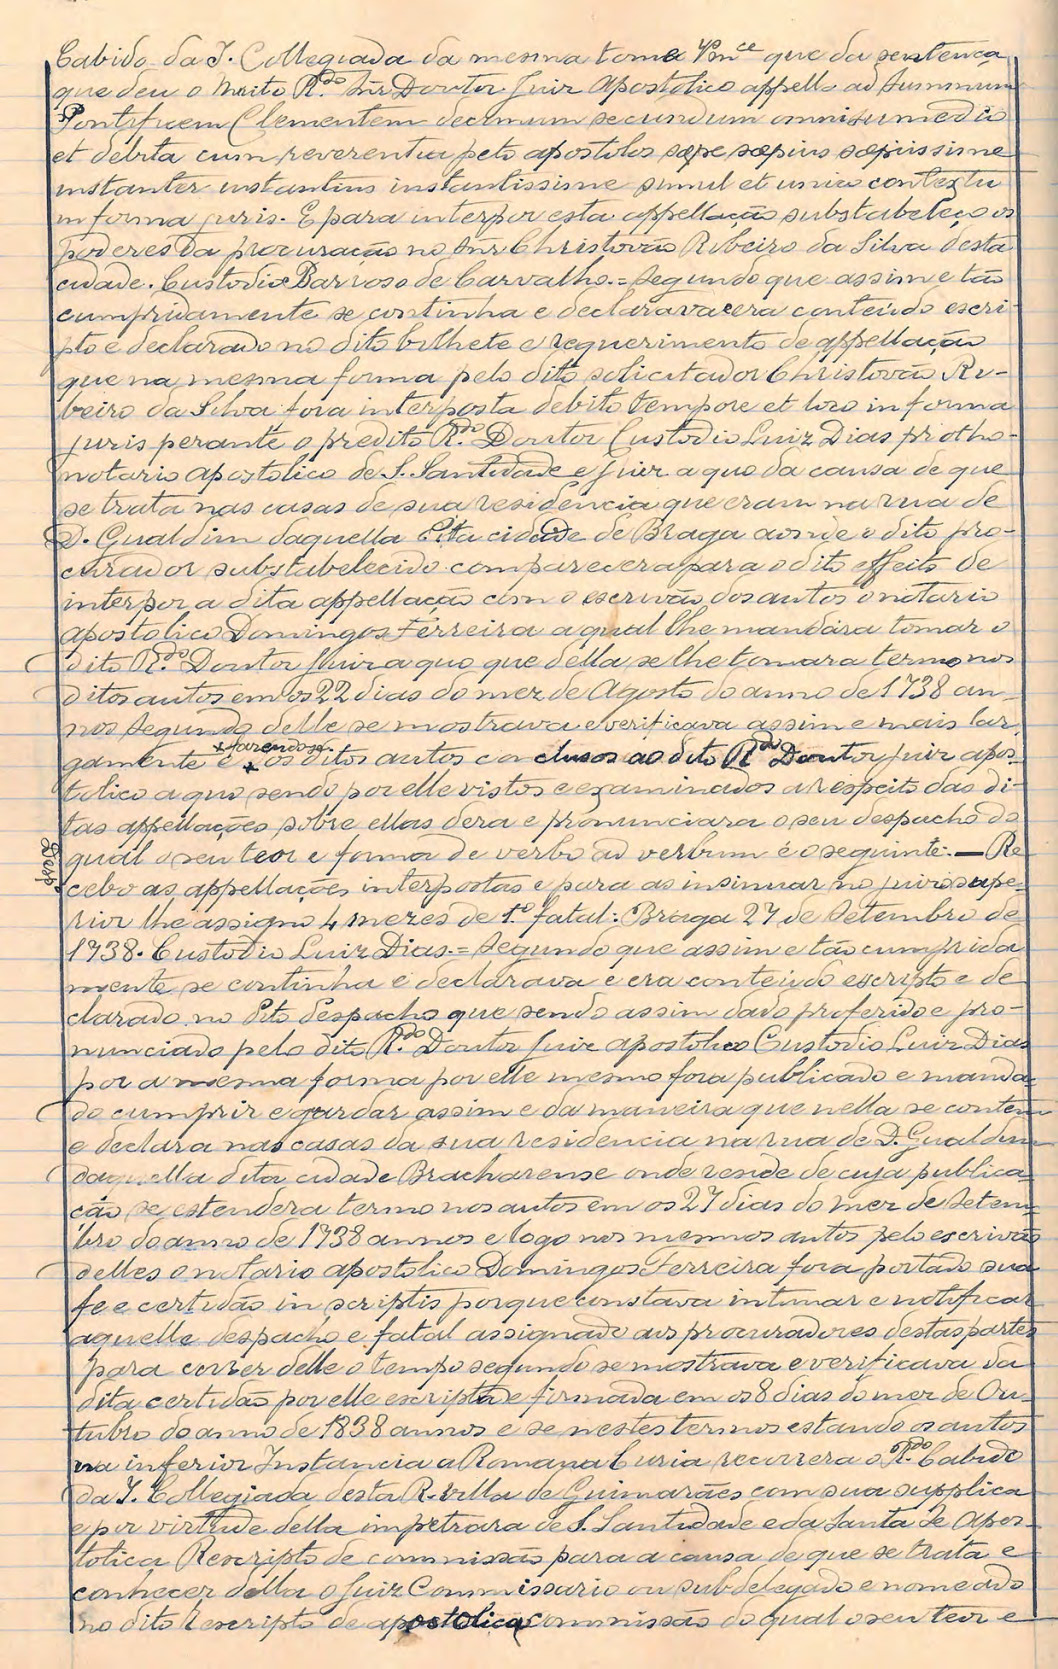 Cabido da I. Collegiada da mesma toma que da sentença
que deu o muito R.do Snr Doutor Juiz Apostolico appello ad Summum
Pontificem Clementem decimum secundum omni
et debita cum reverentia peto apostolos sæpe sæpius sæpissime
instanter instantius instantissime simul et unico contextu
in forma juris. E para interpor esta appellação substabeleço os
poderes da procuração no Snr. Christovão Ribeiro da Silva desta
cidade. Custodio Barroso de Carvalho.= Segundo que assim e tão
cumpridamente se continha e declarava e era conteúdo escri-
pto e declarado no dito bilhete e requerimento de appellação
que na mesma forma pelo dito solicitador Christovão Ri-
beiro da Silva fora interposta debito tempore et loco in forma
juris perante o predito R.do Doutor Custodio Luiz Dias protho-
notario apostolico de S. Santidade e Juiz a quo da causa de que
se trata nas casas de sua residencia que eram na rua de
D. Gualdim daquella dita cidade de Braga aonde o dito pro-
curador substabelecido comparecera para o dito effeito de
interpor a dita appellação com o escrivão dos autos o notario
apostolico Domingos Ferreira a qual lhe mandára tomar o
dito R.do Doutor Juiz a quo que della se lhe tomara termo nos
ditos autos em os 22 dias do mez de Agosto do anno de 1738 an-
nos segundo delle se mostrava e verificava assim e mais lar-
gamente e + os ditos autos conclusos ao dito R.do Doutor Juiz apos-
+ fazendose
tolico a quo sendo por elle vistos e examinados a respeito das di-
tas appellações sobre ellas dera e pronunciara o seu despacho do
qual o seu teor e forma de verbo ad verbum é o seguinte: — Re
Desp.
cebo as appellações interpostas e para as insinuar no juizo supe-
rior lhe assigno 4 mezes de 1.º fatal: Braga 27 de Setembro de
1738. Custodio Luiz Dias.= Segundo que assim e tão cumprida
mente se continha e declarava e era conteúdo escripto e de
clarado no dito despacho que sendo assim dado proferido e pro-
nunciado pelo dito R.do Doutor Juiz apostolico Custodio Luiz Dias
por a mesma forma por elle mesmo fora publicado e manda-
do cumprir e gardar assim e da maneira que nella se contem
e declara nas casas da sua residencia na rua de D. Gualdim
daquella dita cidade Bracharense onde reside de cuja publica-
ção se estendera termo nos autos em os 27 dias do mez de Setem-
bro do anno de 1738 annos e logo nos mesmos autos pelo escrivão
delles o notario apostolico Domingos Ferreira fora portado sua
fe e certidão in scriptis porque constava intimar e notificar
aquelle despacho e fatal assignado aos procuradores destas partes
para correr delle o tempo segundo se mostrava e verificava da
dita certidão por elle escripta e firmada em os 8 dias do mez de Ou-
tubro do anno de 1838 annos e se nestes termos estando os autos
na inferior Instancia a Romana Curia recorrera o R.do Cabido
da I. Collegiada desta R. villa de Guimarães com sua supplica
e por virtude della impetrara de S. Santidade e da Santa Sé Apos-
tolica Rescripto de commissão para a causa de que se trata e
conhecer della o Juiz Commissario ou subdelegado e nomeado
no dito Rescripto de apostolica commissão do qual o seu teor e